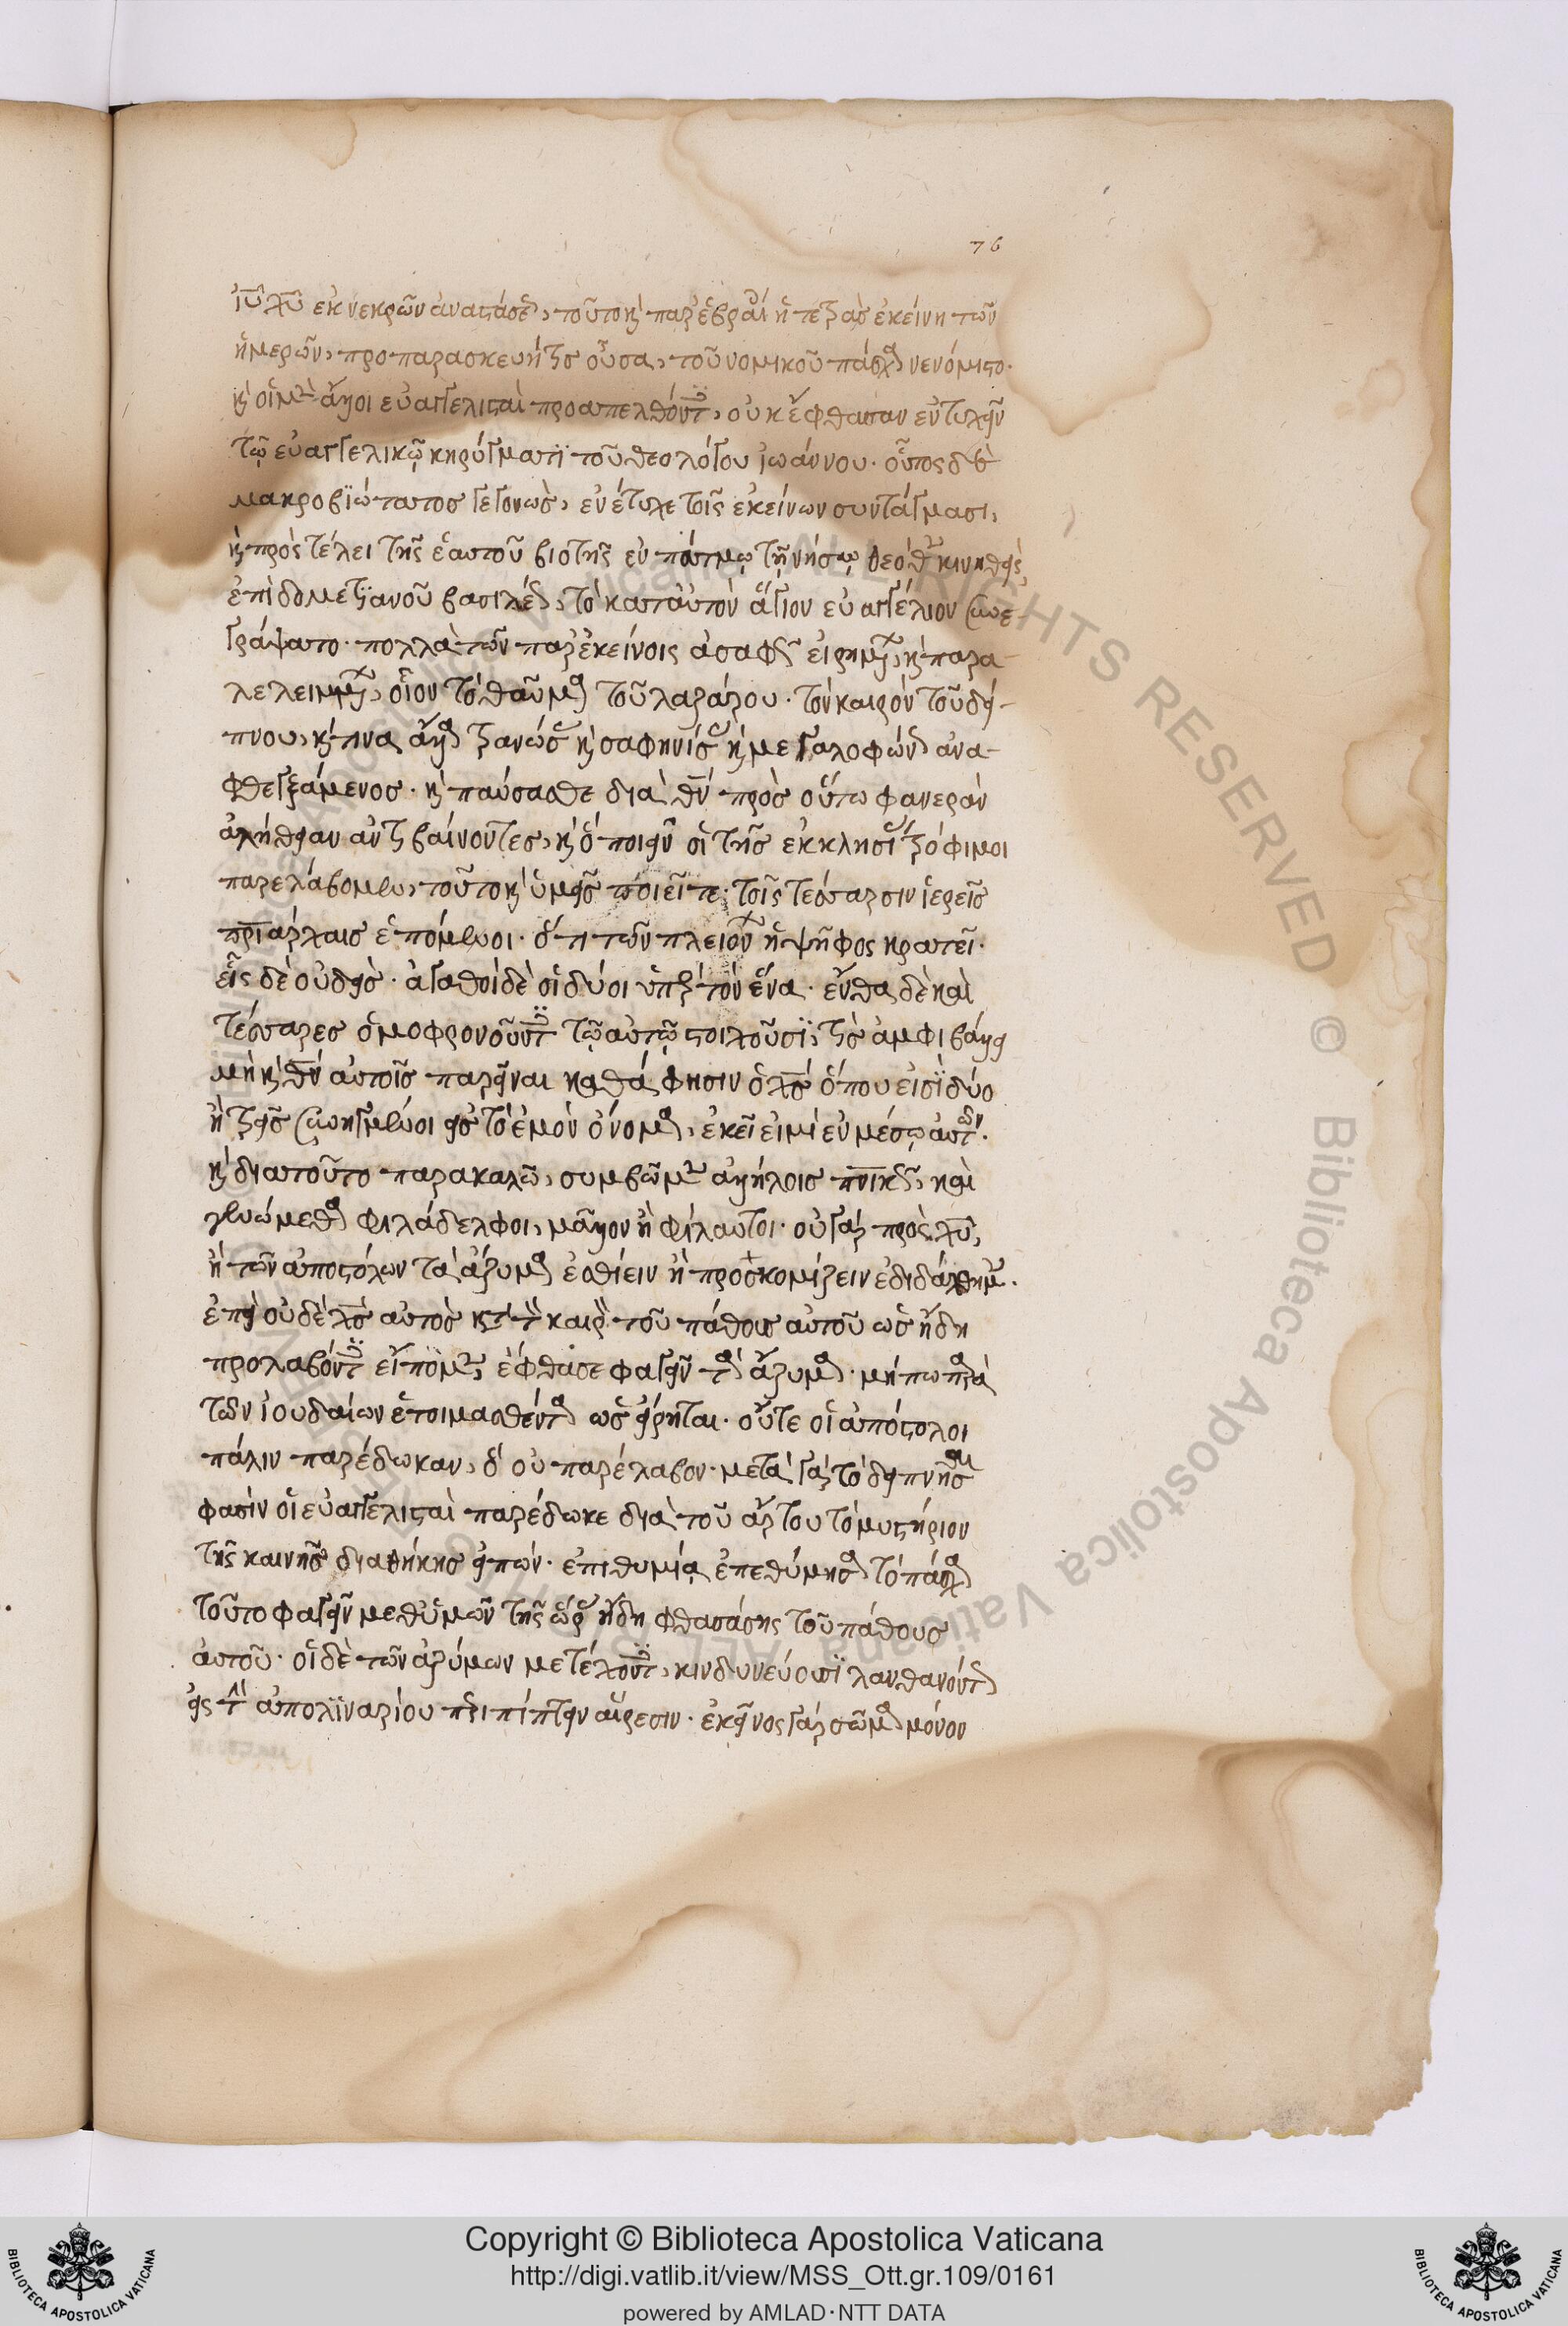 76
ἰῦ χῦ ἐκ νεκρῶν ἀναστάσεως, τοῦτο καὶ παρ' ἑβραίοις ἡ τετρὰς ἐκείνη τῶν
ἡμερῶν, προπαρασκευή τις οὖσα, τοῦ νομικοῦ πάσχα νενόμιστο.
καὶ οἱ μὲν ἄλλοι εὐαγγελισταὶ προαπελθόντες, οὐκ ἔφθασαν ἐντυχεῖν
τῷ εὐαγγελικῷ κηρύγματι τοῦ θεολόγου ἰωάννου. οὗτος δὲ
μακροβϊώτατος γεγονὼς, ἐνέτυχε τοῖς ἐκείνων συντάγμασι,
καὶ πρὸς τέλει τῆς ἑαυτοῦ βιοτῆς ἐν πάτμῳ τῇ νήσῳ θεόθεν κινηθεὶς,
ἐπὶ δομετιανοῦ βασιλέως, τὸ κατ' αὐτὸν ἅγιον εὐαγγέλιον συνε-
γράψατο. πολλὰ τῶν παρ' ἐκείνοις ἀσαφῶς εἰρημένων, καὶ παρα-
λελειμμένων, οἷον τὸ θαῦμα τοῦ λαζάρου. τὸν καιρὸν τοῦ δεί-
πνου, καί τινα ἄλλα τρανώσας καὶ σαφηνίσας καὶ μεγαλοφώνως ἀνα-
φθεγξάμενος. καὶ παύσασθε διὰ θν̅ πρὸς οὕτω φανερὰν
ἀλήθειαν ἀντιβαίνοντες, καὶ ὃ ποιεῖν οἱ τῆς ἐκκλησίας τρόφιμοι
παρελάβομεν, τοῦτο καὶ ὑμεῖς ποιεῖτε. τοῖς τέσσαρσιν ἱερεῖς
πριάρχαις ἑπόμενοι. ὅτι τῶν πλειόνων ἡ ψῆφος κρατεῖ.
εἷς δὲ οὐδεὶς. ἀγαθοὶ δὲ οἱ δύοι ὑπὲρ τὸν ἕνα. ἔνθα δὲ καὶ
τέσσαρες ὁμοφρονοῦντες τῷ αὐτῷ στοιχοῦσϊ, τίς ἀμφιβάλλει
μὴ καὶ θν̅ αὐτοῖς παρεῖναι καθά φησιν ὁ χς̅ ὅπου εἰσῒ δύο
ἢ τρεῖς συνηγμένοι εἰς τὸ ἐμὸν ὄνομα, ἐκεῖ εἰμὶ ἐν μέσῳ αὐτῶν.
καὶ διατοῦτο παρακαλῶ, συμβῶμεν ἀλλήλοις πνικῶς, καὶ
γενώμεθα φιλάδελφοι, μᾶλλον ἢ φίλαυτοι. οὐ γὰρ πρὸς χῦ,
ἢ τῶν ἀποστόλων τὰ ἄζυμα ἐσθίειν ἢ προσκομίζειν ἐδιδάχθημεν.
ἐπεὶ οὐδὲ χς̅ αὐτὸς κατὰ τὸν καιρὸν τοῦ πάθους αὐτοῦ ὡς ἤδη
προλαβόντες εἴπομεν, ἔφθασε φαγεῖν τὰ ἄζυμα. μήπω παρὰ
τῶν ἰουδαίων ἑτοιμασθέντα ὡς εἴρηται. οὔτε οἱ ἀπόστολοι
πάλιν παρέδωκαν, ὃ οὐ παρέλαβον. μετὰ γὰρ τὸ δειπνῆσαι
φασὶν οἱ εὐαγγελισταὶ παρέδωκε διὰ τοῦ ἄρτου τὸ μυστήριον
τῆς καινῆς διαθήκης εἰπών. ἐπιθυμίᾳ ἐπεθύμησα τὸ πάσχα
τοῦτο φαγεῖν μεθ' ὑμῶν τῆς ὥρας ἤδη φθασάσης τοῦ πάθους
αὐτοῦ. οἱ δὲ τῶν ἀζύμων μετέχοντες, κινδυνεύουσϊ λανθανόντως
εἰς τὴν ἀπολϊναρίου περιπίπτειν αἵρεσιν. ἐκεῖνος γὰρ σῶμα μόνον
Copyright © Biblioteca Apostolica Vaticana
http://digi.vatlib.it/view/MSS_Ott.gr.109/0161
powered by AMLAD·NTT DATA
BIBLIOTECA APOSTOLICA VATICANA
BIBLIOTECA APOSTOLICA VATICANA